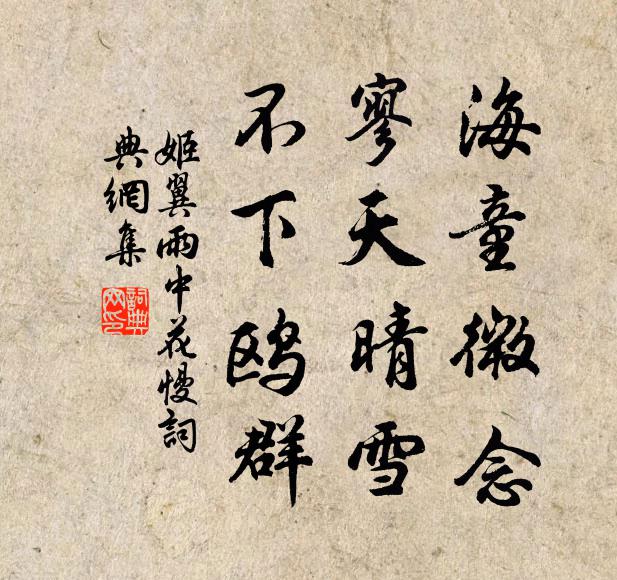 海童微念
寥天晴雪
不下鸥群
姬翼雨中花慢詞
典網集
詞典
网印